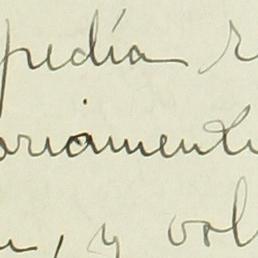 pedía
ariamente
, y vol